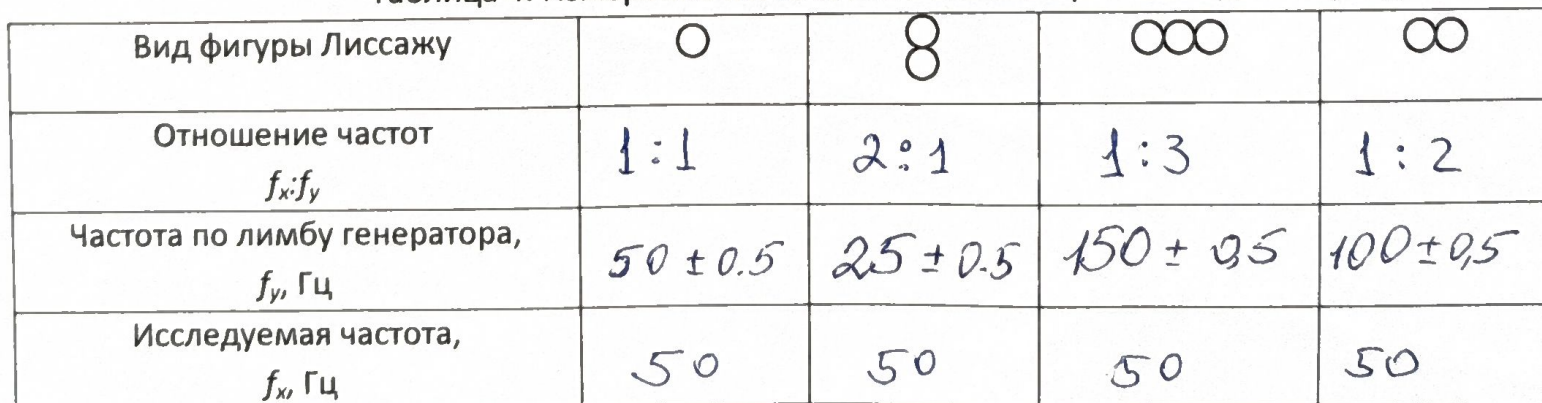 Вид фигуры Лиссажу
Отношение частот
fx:fy
1:1
2:1
1:3
1:2
Частота по лимбу генератора,
fy, Гц
50 ± 0.5
25 ± 0.5
150 ± 0,5
100 ± 0,5
Исследуемая частота,
fx, Гц
50
50
50
50